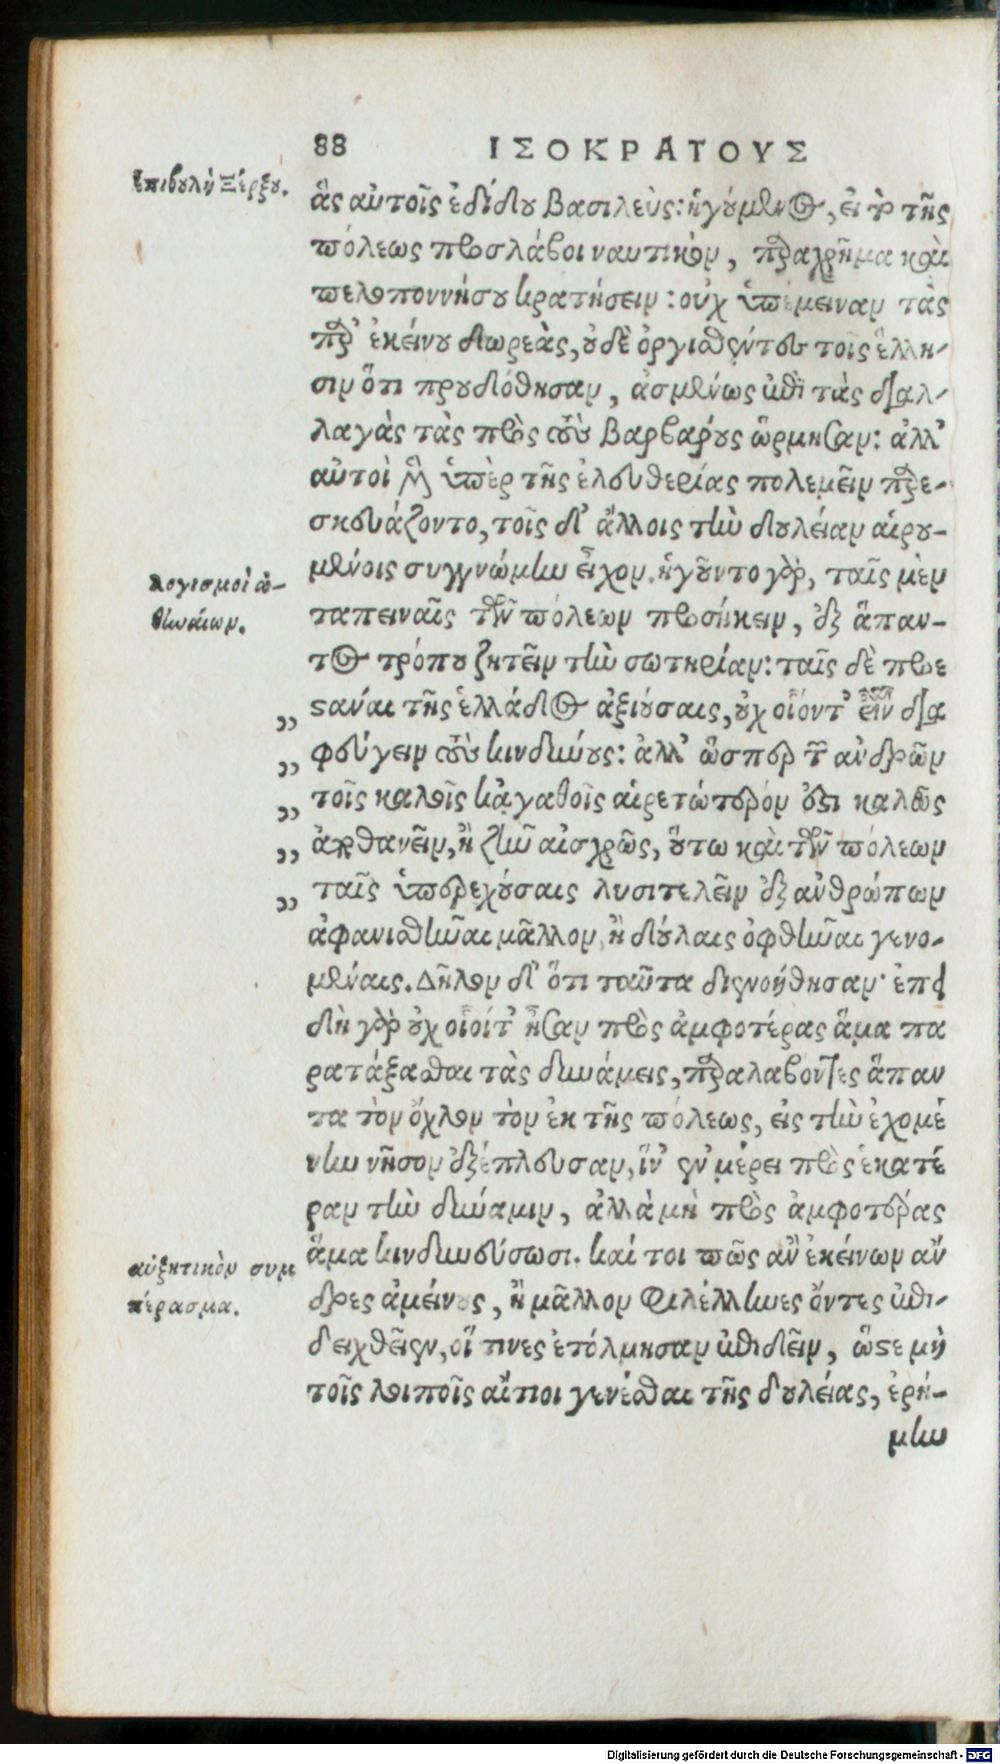 88 ΙΣΟΚΡΑΤΟΥΣ
Ἐπιβουλὴ Ξέρξου.
ἃς αὐτοῖς ἐδίδου βασιλεὺς: ἡγούμενος, εἰ τὸ τῆς
πόλεως προσλάβοι ναυτικὸν, παραχρῆμα καὶ
πελοποννήσου κρατήσειν: οὐχ ὑπέμειναν τὰς
παρ' ἐκείνου δωρεὰς, οὐδὲ ὀργισθέντες τοῖς ἕλλη-
σιν ὅτι προυδόθησαν, ἀσμένως ἐπὶ τὰς διαλ-
λαγὰς τὰς πρὸς τοὺς βαρβάρους ὥρμησαν: ἀλλ'
αὐτοὶ μὲν ὑπὲρ τῆς ἐλευθερίας πολεμεῖν παρε-
σκευάζοντο, τοῖς δ' ἄλλοις τὴν δουλείαν αἱρου-
μένοις συγγνώμην εἶχον. ἡγοῦντο γὰρ, ταῖς μὲν
λογισμοὶ ἀ-
θηναίων.
ταπειναῖς τῶν πόλεων προσήκειν, ἐξ ἅπαν-
τος τρόπου ζητεῖν τὴν σωτηρίαν: ταῖς δὲ προε
„ στάναι τῆς ἑλλάδος ἀξιούσαις, οὐχ οἷόντ' εἶναι δια
„ φεύγειν τοὺς κινδύνους: ἀλλ' ὥσπερ τῶν ἀνδρῶν
„ τοῖς καλοῖς κἀγαθοῖς αἱρετώτερόν ἐστι καλῶς
„ ἀποθανεῖν, ἢ ζῆν αἰσχρῶς, οὕτω καὶ τῶν πόλεων
„ ταῖς ὑπερεχούσαις λυσιτελεῖν ἐξ ἀνθρώπων
ἀφανισθῆναι μᾶλλον, ἢ δούλαις ὀφθῆναι γενο-
μέναις. Δῆλον δ' ὅτι ταῦτα διενοήθησαν· ἐπει
δὴ γὰρ οὐχ οἷοίτ' ἦσαν πρὸς ἀμφοτέρας ἅμα πα
ρατάξασθαι τὰς δυνάμεις, παραλαβόντες ἅπαν
τα τὸν ὄχλον τὸν ἐκ τῆς πόλεως, εἰς τὴν ἐχομέ
νην νῆσον ἐξέπλευσαν, ἵν' ἐν μέρει πρὸς ἑκατέ
ραν τὴν δύναμιν, ἀλλὰ μὴ πρὸς ἀμφοτέρας
ἅμα κινδυνεύσωσι. καί τοι πῶς ἂν ἐκείνων ἄν
αὐξητικὸν συμ
πέρασμα.
δρες ἀμείνους, ἢ μᾶλλον φιλέλληνες ὄντες ἐπι-
δειχθεῖεν, οἵ τινες ἐτόλμησαν ἐπιδεῖν, ὥστε μὴ
τοῖς λοιποῖς αἴτιοι γενέσθαι τῆς δουλείας, ἐρή-
μην
Digitalisierung gefördert durch die Deutsche Forschungsgemeinschaft - DFG